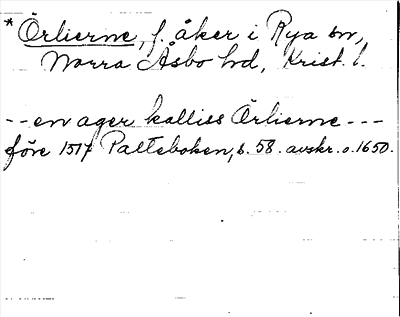 * Örlierne, f. åker i Rya sn,
Norra Åsbo hd, Krist. l.
-- en ager kalliss Örlierne ---
före 1517 Palteboken, s. 58. avskr. o. 1650.